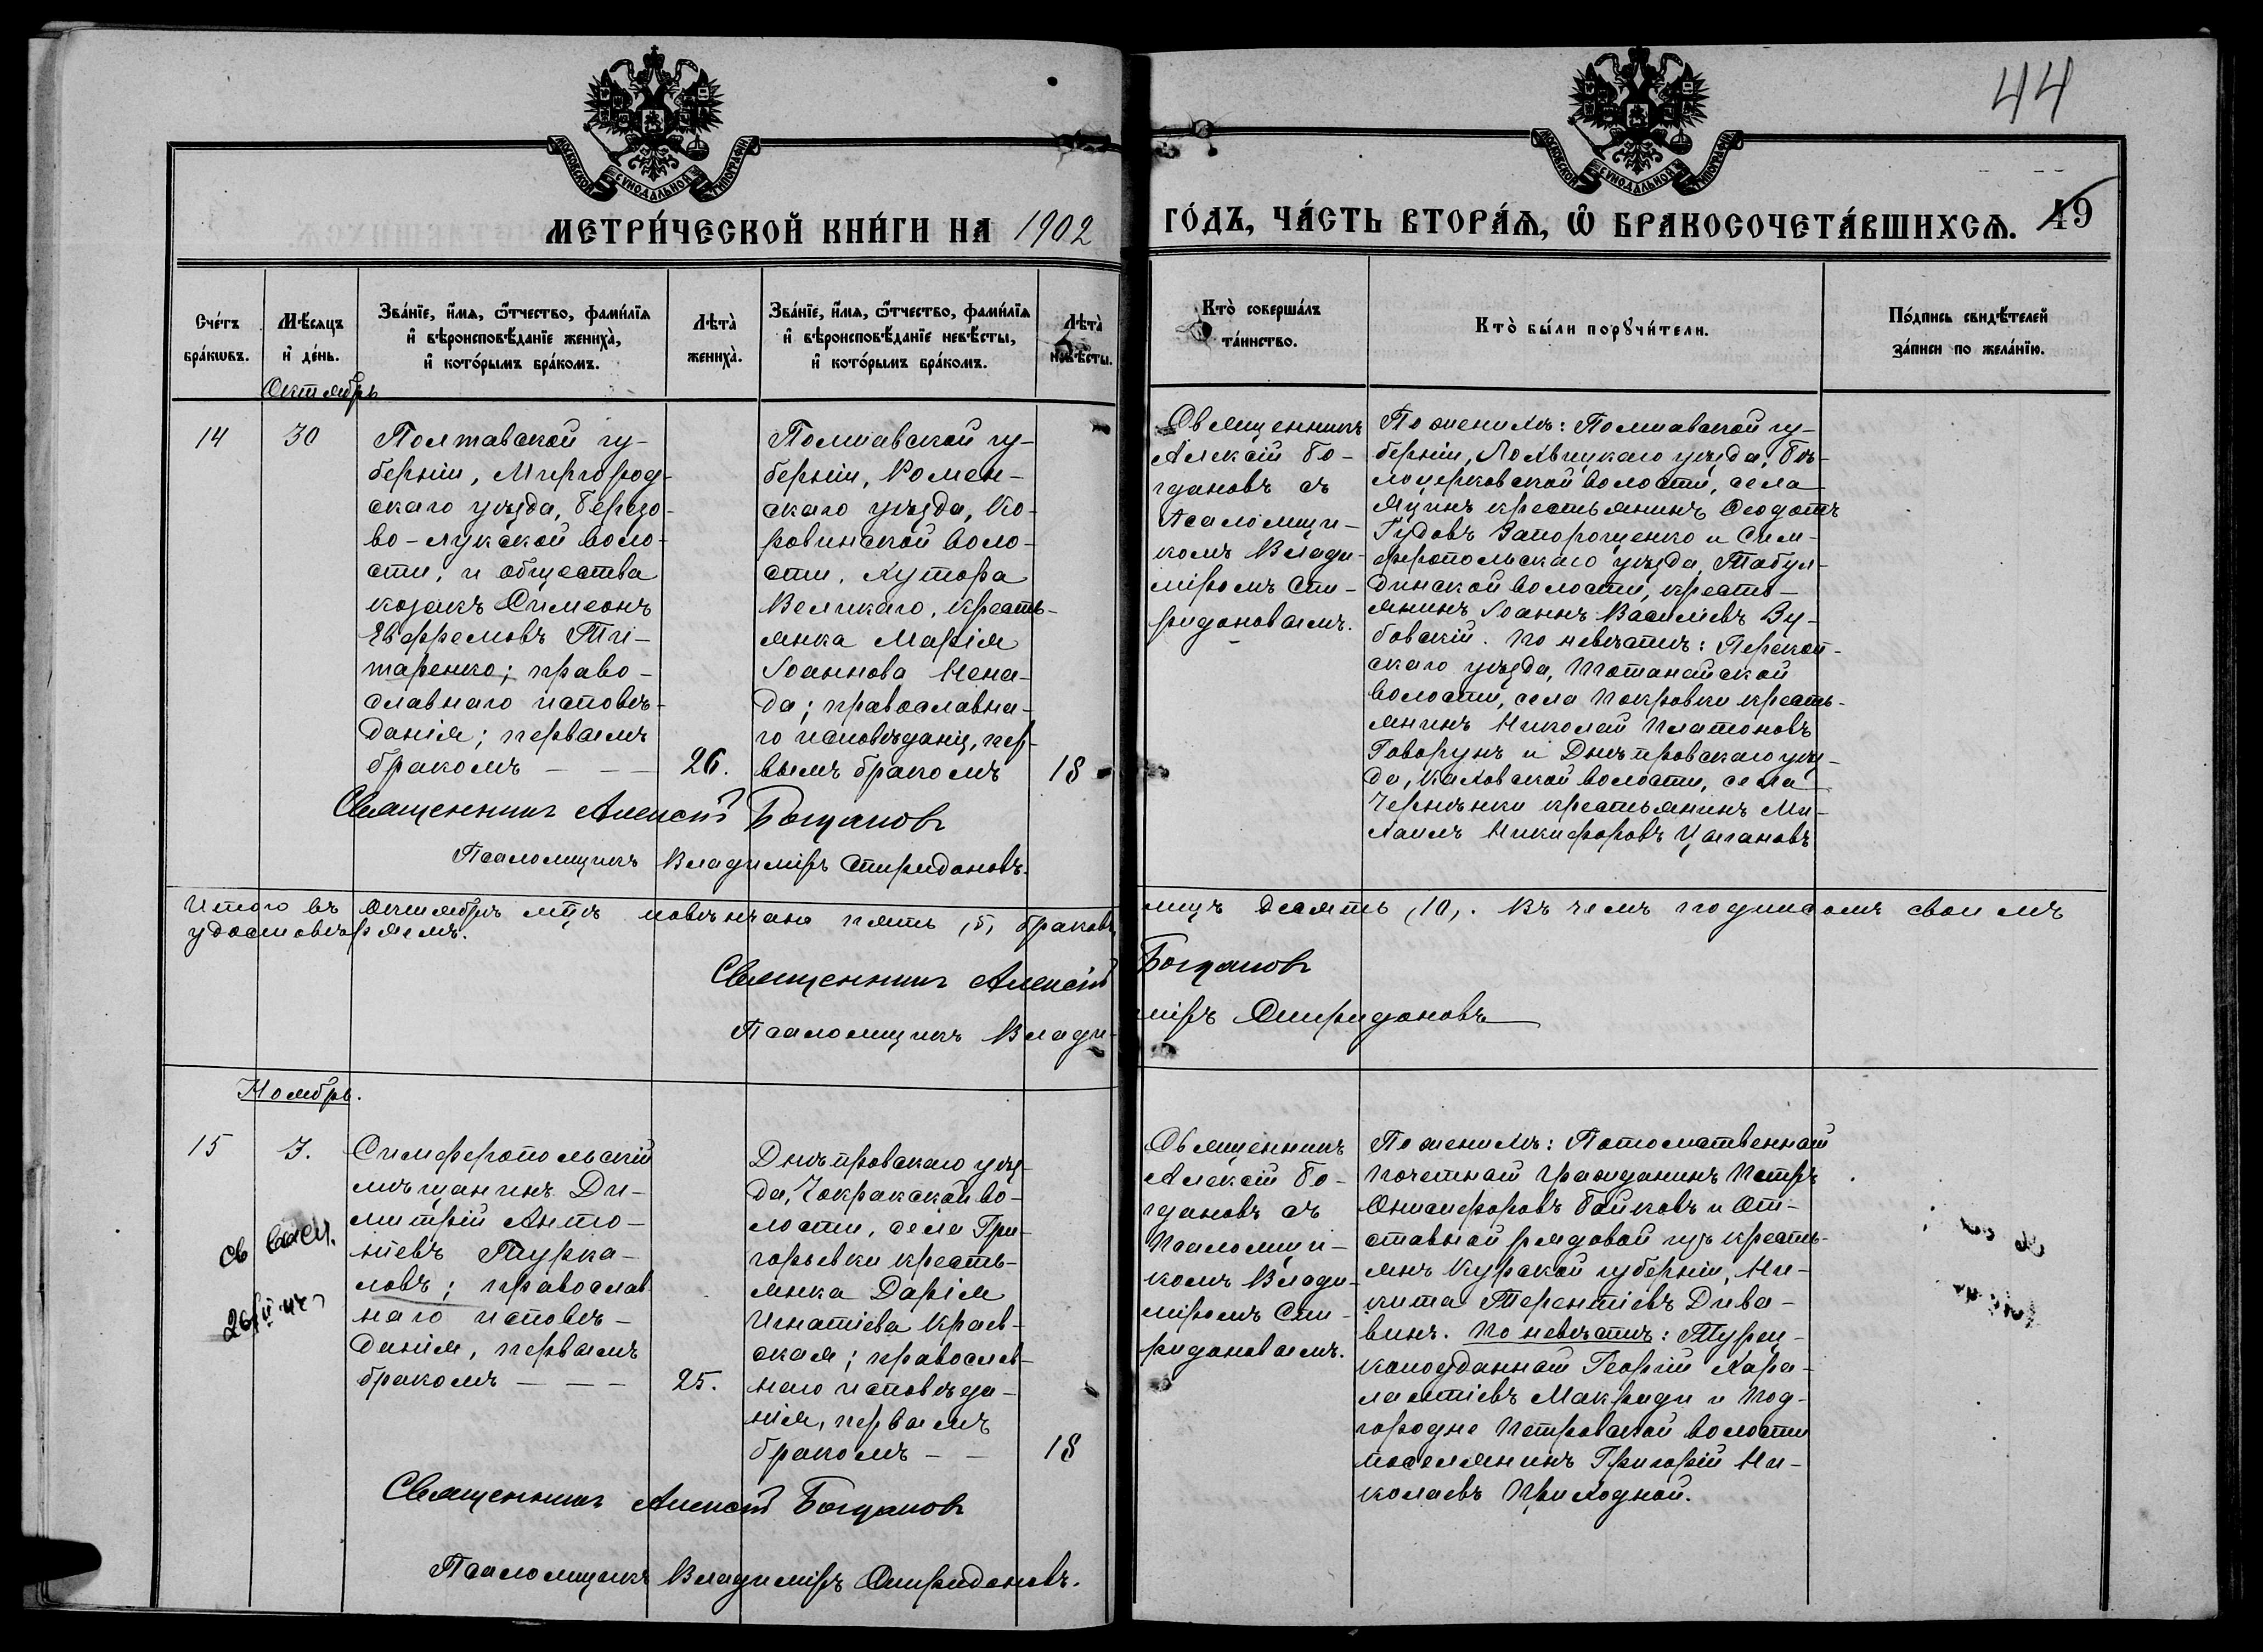 44
МОСКОВСКОЙ СѴНОДАЛЬНОЙ ТИПОГРАФІИ
МОСКОВСКОЙ СѴНОДАЛЬНОЙ ТИПОГРАФІИ
МЕТРИ́ЧЕСКОЙ КНИ́ГИ НА 1902
ГО́ДЪ, ЧА́СТЬ ВТОРА́Ѧ, Ѽ БРАКОСОЧЕТА́ВШИХСѦ. 49
Сче́тъ бра́кωвъ.
Мѣ́сѧцъ и҆ де́нь.
Зва́нїе, и҆́мѧ, ѻ҆́тчество, фами́лїѧ
и҆ вѣроисповѣ́данїе жениха̀,
и҆ кото́рымъ бра́комъ.
Лѣта̀ жениха̀.
Зва́нїе, и҆́мѧ, ѻ҆́тчество, фами́лїѧ
и҆ вѣроисповѣ́данїе невѣ́сты,
и҆ кото́рымъ бра́комъ.
Лѣта̀ невѣ́сты.
Кто̀ соверша́лъ
та́инство.
Кто̀ бы́ли порꙋчи́тели.
По́дпись свидѣ́телей
за́писи по жела́нїю.
Октябрь
14
30
Полтавской гу-
берніи, Миргород-
скаго уѣзда, Березо-
во-лукской воло-
сти, и общества
козакъ Симеонъ
Евфремовъ Ти-
таренко; право-
славнаго исповѣ-
данія; первымъ
бракомъ — — —
26.
Полтавской гу-
берніи, Ромен-
скаго уѣзда, Ко-
ровинской воло-
сти, хутора
Великаго, кресть-
янка Марія
Іоаннова Нена-
да; православна-
го исповѣданія, пер-
вымъ бракомъ
18
Священникъ
Алексій Бо-
гдановъ съ
псаломщи-
комъ Влади-
міромъ Спи-
ридоновымъ.
По женихѣ: Полтавской гу-
берніи, Лохвицкаго уѣзда, Бѣ-
лоцерковской волости, села
Яцинъ крестьянинъ Ѳеодотъ
Запорощенко и Сим-
феропольскаго уѣзда, Табул-
динской волости, кресть-
янинъ Іоаннъ Василіевъ Зу-
бовскій. По невѣстѣ: Перекоп-
скаго уѣзда,
волости, села Покровки кресть-
янинъ Николай Платоновъ
Говорунъ и Днѣпровскаго уѣз-
да, Каховской волости, села
Чернянки крестьянинъ Ми-
хаилъ Никифоровъ Цыгановъ
Священникъ Алексій Богдановъ
Псаломщикъ Владиміръ Спиридоновъ.
Итого въ октябрѣ мцѣ повѣнчано пять (5) браковъ, лицъ десять (10). Въ чемъ подписомъ своимъ
удостовѣряемъ.
Священникъ Алексій Богдановъ
Псаломщикъ Владиміръ Спиридоновъ
Ноябрь.
15
3.
Симферопольскій
мѣщанинъ Ди-
митрій Анто-
ніевъ Турка-
ловъ; православ-
наго исповѣ-
данія, первымъ
бракомъ — — —
25.
Днѣпровскаго уѣз-
да, Чокракской во-
лости, села Гри-
горьевки кресть-
янка Дарія
Игнатіева Краев-
ская; православ-
наго исповѣда-
нія, первымъ
бракомъ — —
18
Священникъ
Алексій Бо-
гдановъ съ
псаломщи-
комъ Влади-
міромъ Спи-
ридоновымъ.
По женихѣ: Потомственный
почетный гражданинъ Петръ
Онисифоровъ Байковъ и от-
ставной рядовой изъ кресть-
янъ Курской губерніи, Ни-
кита Терентіевъ Дива-
винъ. По невѣстѣ: Турец-
коподданный Георгій Хара-
лампіевъ Макриди и Под-
городне Петровской волости
поселянинъ Григорій Ни-
колаевъ Приходной.
Священникъ Алексій Богдановъ
Псаломщикъ Владиміръ Спиридоновъ.